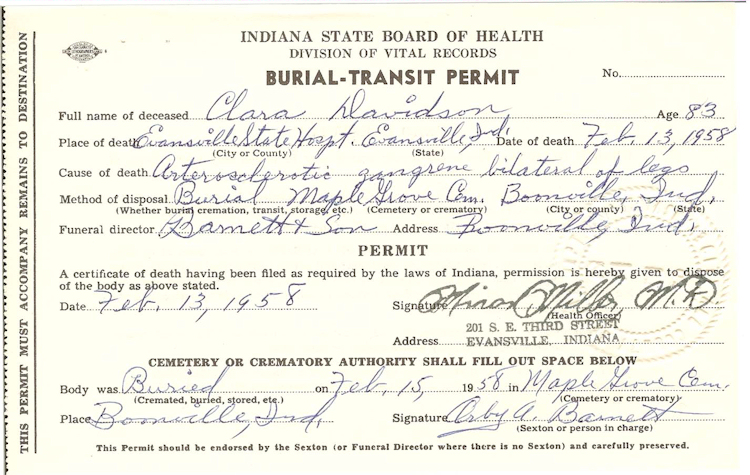 INDIANA STATE BOARD OF HEALTH
DIVISION OF VITAL RECORDS
BURIAL-TRANSIT PERMIT
No.
Full name of deceased Clara Davidson Age 83
Place of death Evansville State Hospt. Evansville, Ind. Date of death Feb. 13, 1958
(City or County) (State)
Cause of death Arterosclerotic gangrene bilateral of legs
Method of disposal Burial Maple Grove Cem. Boonville, Ind.
(Whether burial, cremation, transit, storage, etc.) (Cemetery or crematory) (City or county) (State)
Funeral director Barnett & Son Address Boonville, Ind.
PERMIT
A certificate of death having been filed as required by the laws of Indiana, permission is hereby given to dispose
of the body as above stated.
Date Feb. 13, 1958 Signature Minor Miller M.D.
(Health Officer)
201 S. E. THIRD STREET
Address EVANSVILLE, INDIANA
CEMETERY OR CREMATORY AUTHORITY SHALL FILL OUT SPACE BELOW
Body was Buried on Feb. 15, 1958 in Maple Grove Cem.
(Cremated, buried, stored, etc.) (Cemetery or crematory)
Place Boonville, Ind. Signature Orby A. Barnett
(Sexton or person in charge)
This Permit should be endorsed by the Sexton (or Funeral Director where there is no Sexton) and carefully preserved.
THIS PERMIT MUST ACCOMPANY REMAINS TO DESTINATION